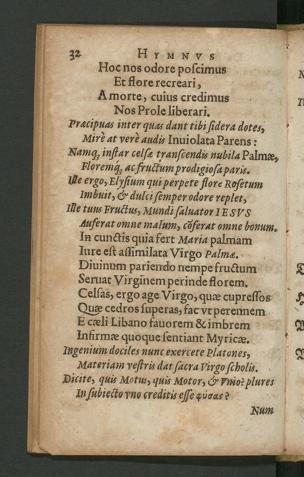 32 HYMNVS
Hoc nos odore poſcimus
Et flore recreari,
A morte, cuius credimus
Nos Prole liberari.
Præcipuas inter quas dant tibi ſidera dotes,
Mirè at verè audis Inuiolata Parens:
Namq, inſtar celſæ tranſcendis nubila Palmæ,
Floremq, ac fructum prodigioſa paris.
Ille ergo, Elyſium qui perpete flore Roſetum
Imbuit, & dulci ſemper odore replet,
Ille tuus Fructus, Mundi ſaluator IESVS
Auferat omne malum, cōferat omne bonum.
In cunctis quia fert Maria palmam
Iure eſt aſſimilata Virgo Palmæ.
Diuinum pariendo nempe fructum
Seruat Virginem perinde florem.
Celſas, ergo age Virgo, quæ cupreſſos
Quæ cedros ſuperas, fac vt perennem
E cæli Libano fauorem & imbrem
Infirmæ quoque ſentiant Myricæ.
Ingenium dociles nunc exercete Platones,
Materiam veſtris dat ſacra Virgo ſcholis.
Dicite, quis Motus, quis Motor, & plures
In ſubiecto vno creditis eſſe φύσας?
Num